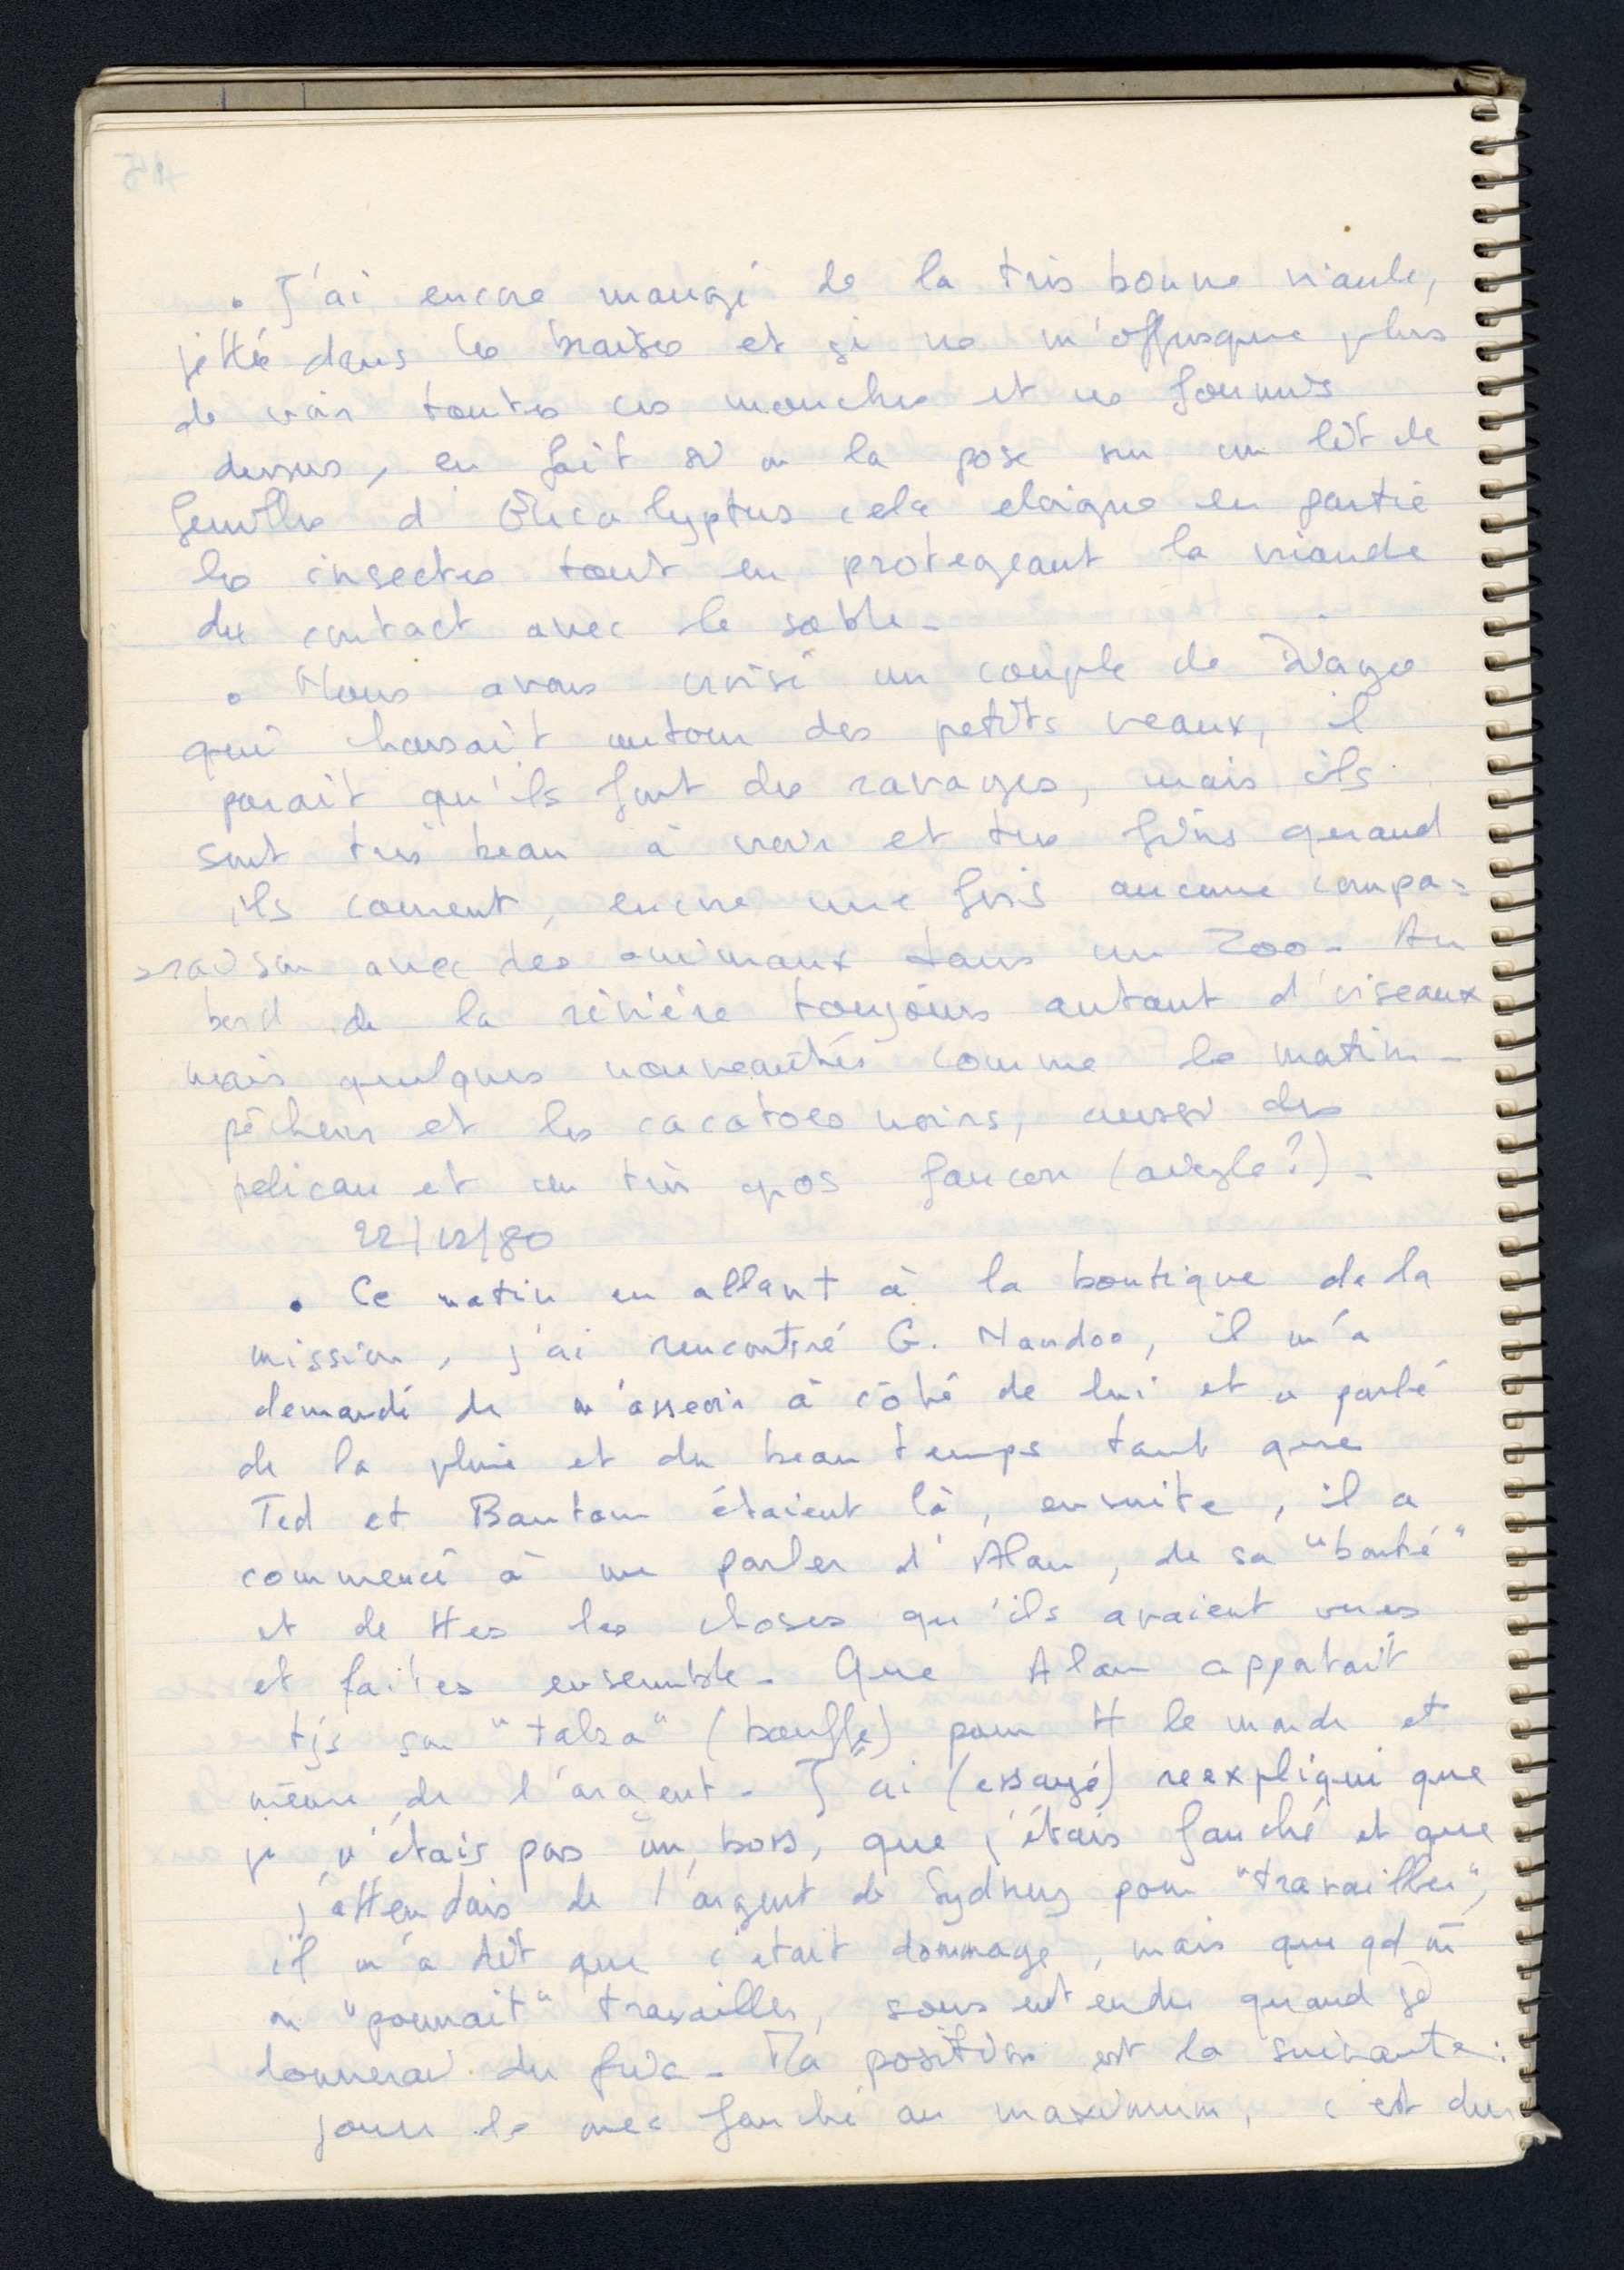 • J'ai encore mangé de la très bonne viande,
jettée dans les braises et je ne m'offusque plus
de voir toutes ces mouches et ces fourmis
dessus, en fait si on la pose sur un lit de
feuilles d'Eucalyptus cela eloigne en partie
les insectes tout en protegeant la viande
du contact avec le sable -
• Nous avons croisé un couple de Dingo
qui chassait autour des petits veaux, il
parait qu'ils font des ravages, mais ils
sont très beau à voir et très fins quand
ils courent, encore une fois aucune compa=
=raison avec des animaux dans un Zoo - Au
bord de la rivière toujours autant d'oiseaux
mais quelques nouveautés comme le matin-
pêcheur et les cacatoes noirs, aussi des
pelican et un très gros faucon (aigle?) -
22/12/80
• Ce matin en allant à la boutique de la
mission, j'ai rencontré G. Nandoo, il m'a
demandé de m'asseoir à côté de lui et a parlé
de la pluie et du beau temps tant que
Ted et Bantam étaient là, ensuite, il a
commencé à me parler d'Alan, de sa "bonté"
et de ttes les choses qu'ils avaient vues
et faites ensemble - Que Alan apportait
tjs son "(bouffe) pour tt le monde et
même de l'argent - J'ai (essayé) reexpliqué que
je n'étais pas un boss, que j'étais fauché et que
j'attendais de l'argent de Sydney pour "travailler",
il m'a dit que c'etait dommage, mais que qd m̄
on "pourrait" travailler, sous entendu quand je
donnerai du fric - Ma position est la suivante :
jouer le mec fauché au maximum, c'est dur